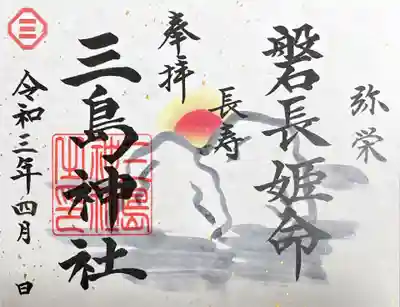 弥栄
磐長姫命
長寿
奉拝
三島神社
令和三年四月 日